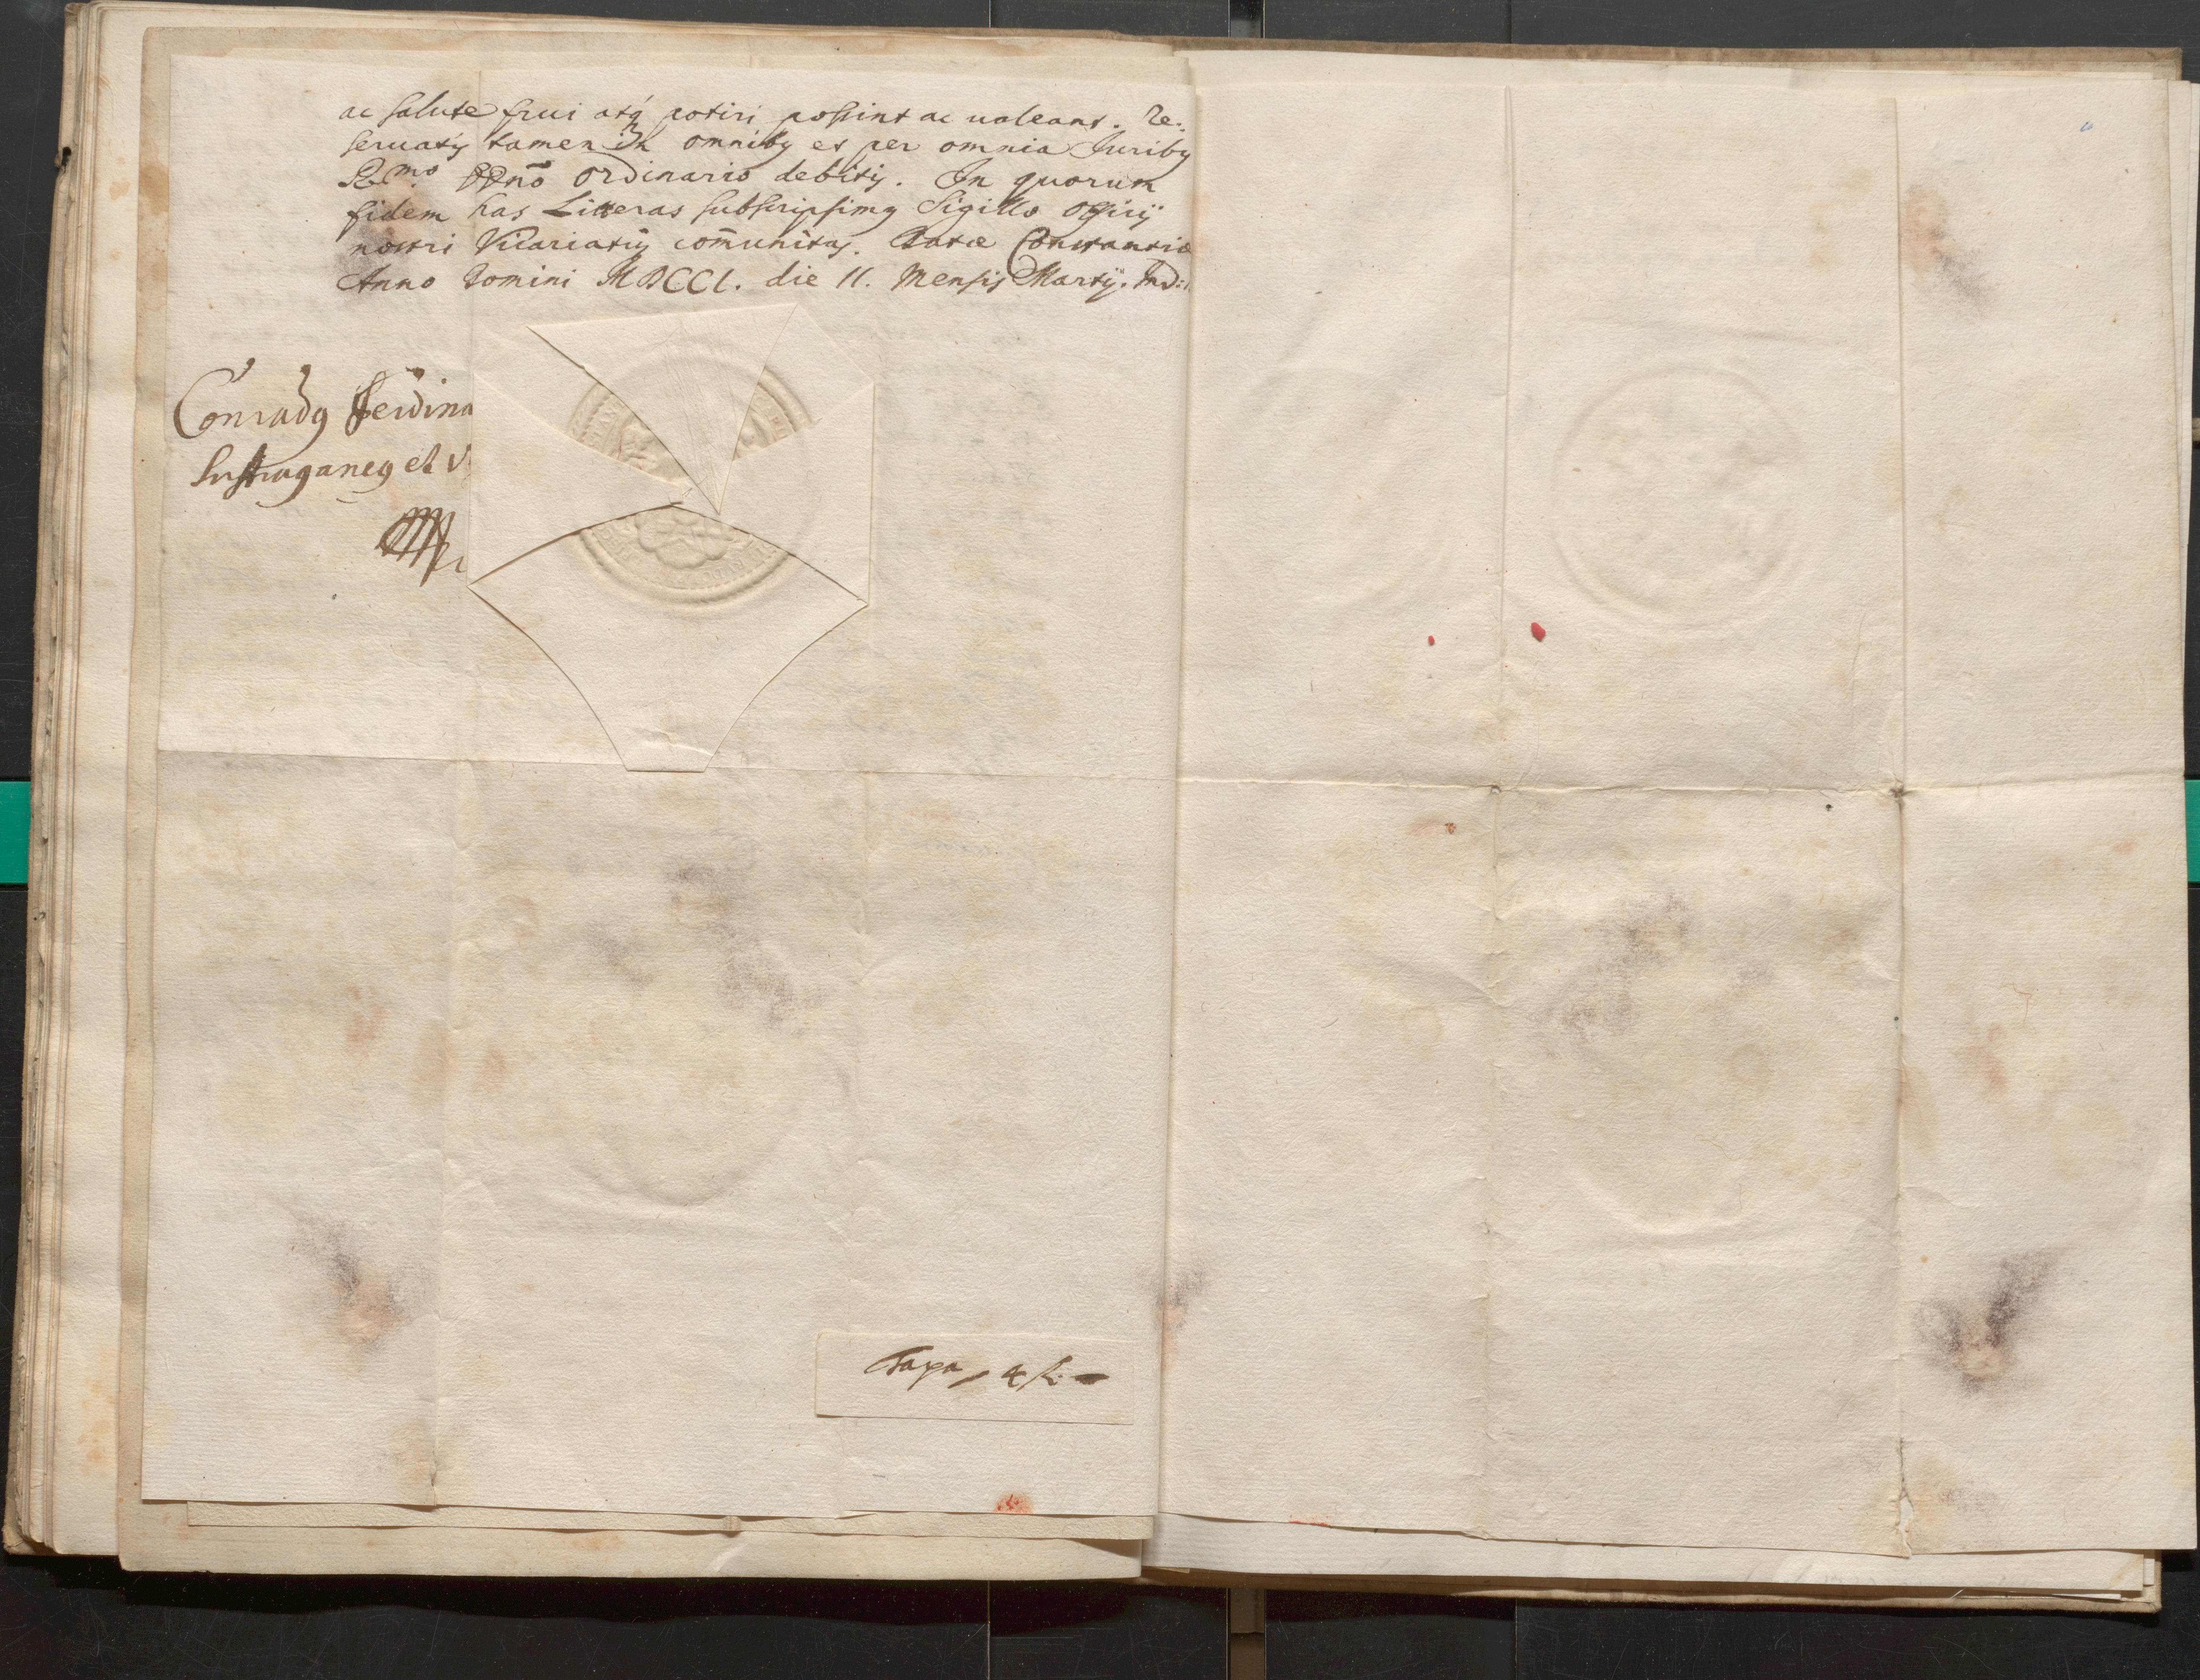 ac salute frui atq́ potiri possint ac ualeant. Re:
seruatis tamen in omnibus et per omnia Juribus
R.mo DDno Ordinario debitis. In quorum
fidem has Litteras subscripsimus Sigillo Officij
nostri Vicariatus com̄unitas. Datæ Constantiæ
Anno Domini MDCCL. die 11. Mensis Martij. Ind:
Conradus Ferdina
Suffraganeus et V
Taxa, 4 f.